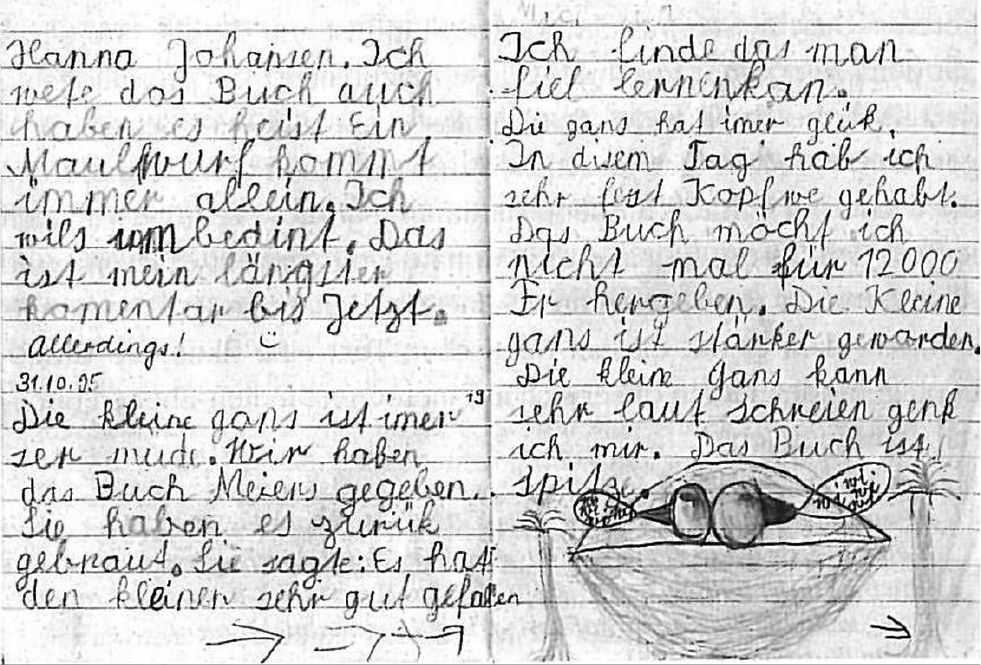 Hanna Johansen. Ich
wete das Buch auch
haben es heist Ein
Maulwurf kommt
immer allein. Ich
wils umbedint. Das
ist mein längster
komentar bis Jetzt.
Allerdings!
31.10.95
19
Die kleine gans ist imer
ser müde. Wir haben
das Buch Meiers gegeben.
Sie haben es zurük
gebraut. Sie sagte: Es hat
den kleinen sehr gut gefallen
Ich finde das man
fiel lernenkan.
Die gans hat imer glük.
In disem Tag hab ich
sehr fest Kopfwe gehabt.
Das Buch möcht ich
nicht mal für 12000
Fr hergeben. Die Kleine
gans ist stärker gewarden.
Die kleine Gans kann
sehr laut schreien genk
ich mir. Das Buch ist
spitze.
wi
wi
wi